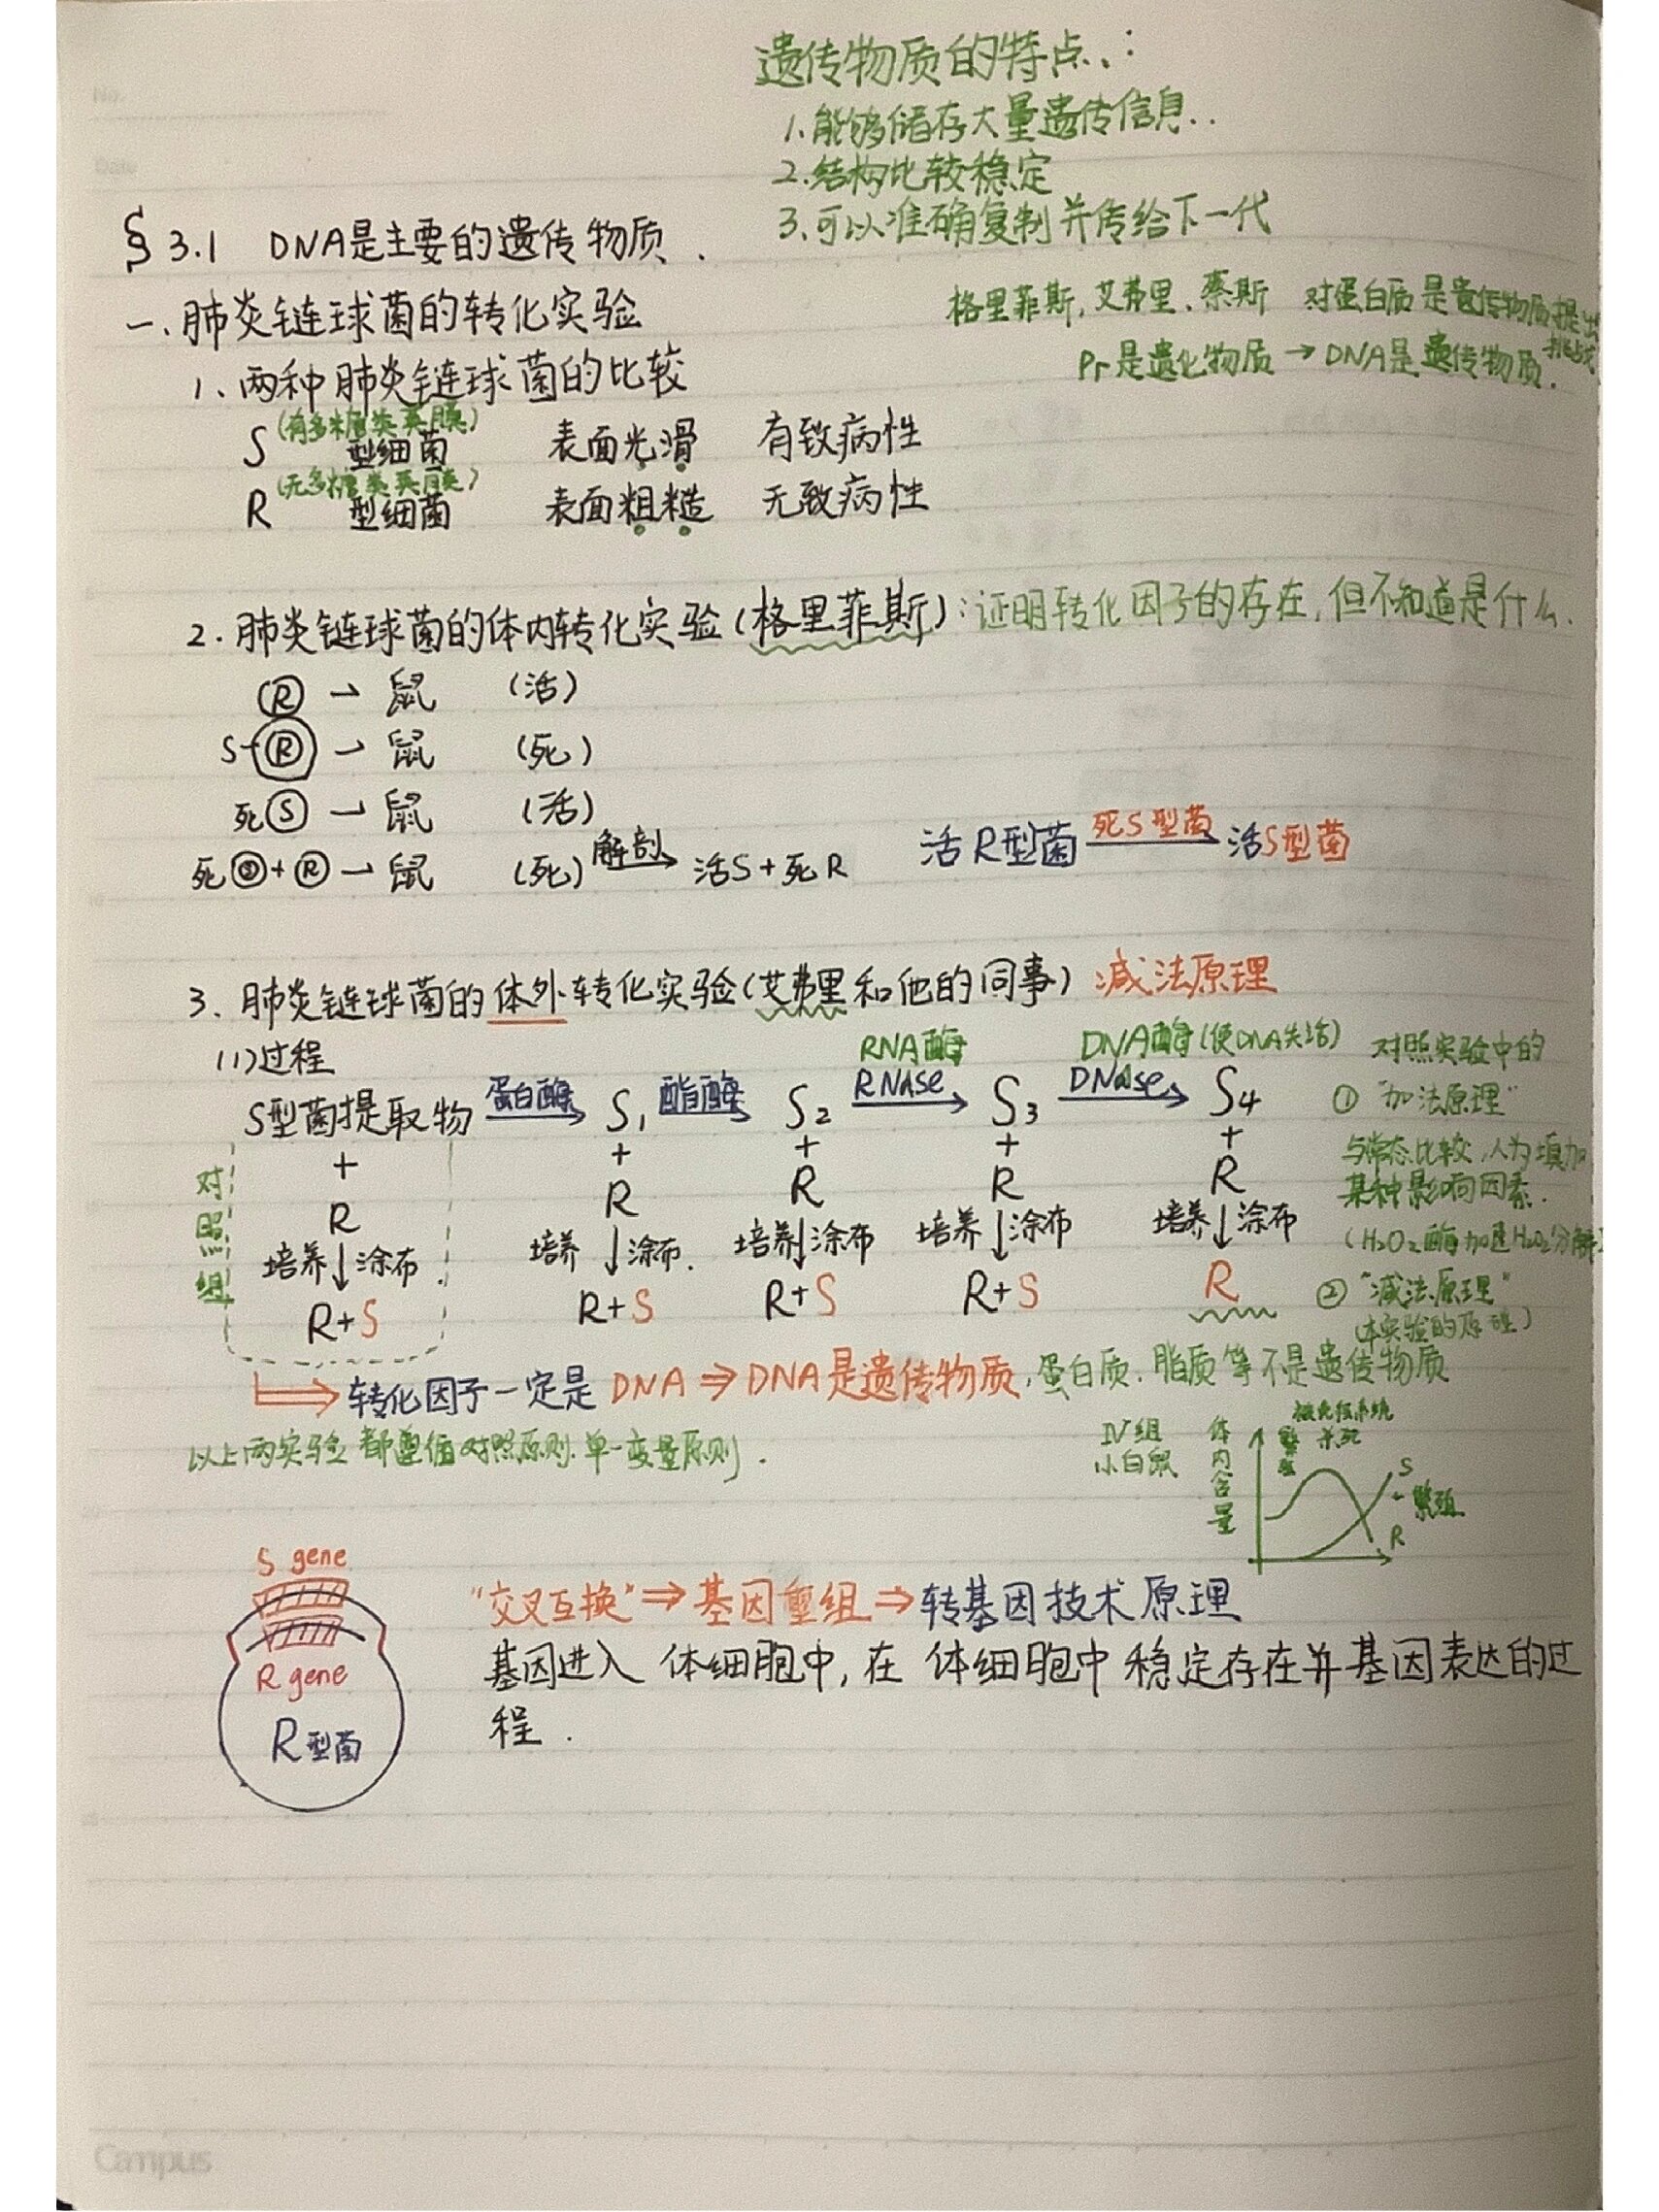 No.
Date
遗传物质的特点:
1.能够储存大量遗传信息..
2.结构比较稳定
3.可以准确复制并传给下一代
§ 3.1 DNA是主要的遗传物质.
格里菲斯,艾弗里、蔡斯 对蛋白质是遗传物质提出挑战
一、肺炎链球菌的转化实验
Pr是遗化物质→DNA是遗传物质.
1、两种肺炎链球菌的比较
(有多糖类荚膜)
S 型细菌 表面光滑 有致病性
(无多糖类荚膜)
R 型细菌 表面粗糙 无致病性
2.肺炎链球菌的体内转化实验(格里菲斯):证明转化因子的存在,但不知道是什么.
R → 鼠 (活)
S R → 鼠 (死)
死 S → 鼠 (活)
死 S + R → 鼠 (死) 解剖→ 活S+死R
活R型菌 死S型菌→ 活S型菌
3、肺炎链球菌的体外转化实验(艾弗里和他的同事) 减法原理
(1)过程
RNA酶 DNA酶(使DNA失活) 对照实验中的
S型菌提取物 蛋白酶→ S1 酯酶→ S2 RNAse→ S3 DNase→ S4 ①"加法原理"
+ + + + + 与常态比较,人为填加
R R R R R 某种影响因素.
对照组
培养↓涂布. 培养↓涂布. 培养↓涂布 培养↓涂布 培养↓涂布 (H2O2酶加速H2O2分解)
R+S R+S R+S R+S R ②"减法原理"
(本实验的原理)
⇒转化因子一定是DNA⇒DNA是遗传物质,蛋白质.脂质等不是遗传物质
以上两实验都遵循对照原则.单一变量原则.
IV组
小白鼠
体内含量
被免疫系统
杀死
S
繁殖
R
S gene
R gene
R型菌
"交叉互换"⇒基因重组⇒转基因技术原理
基因进入体细胞中,在体细胞中稳定存在并基因表达的过
程.
Campus